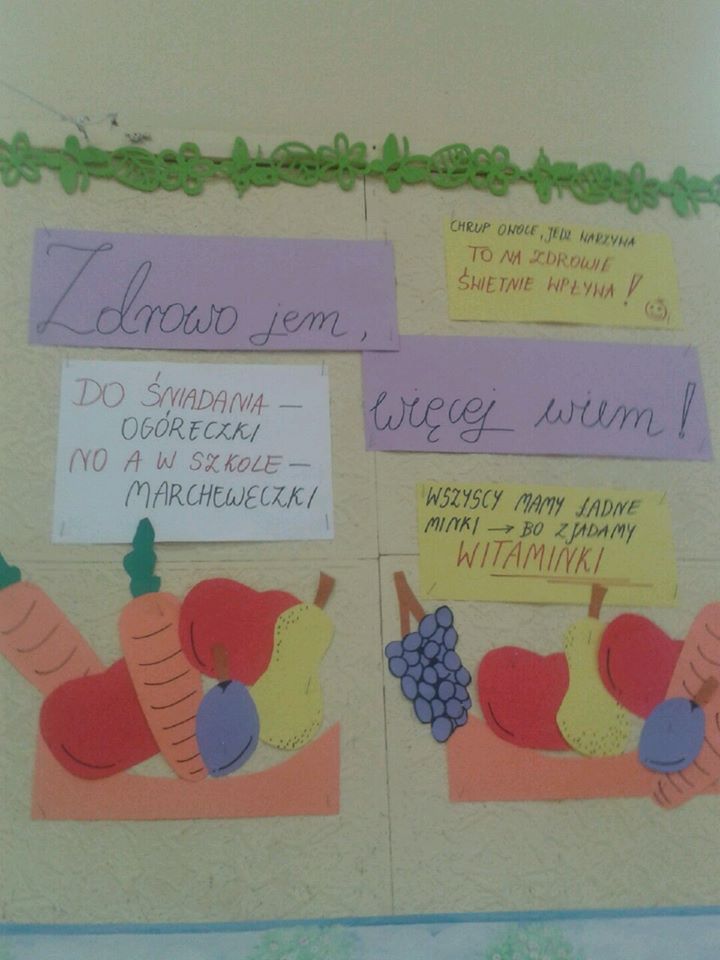 Zdrowo jem,
więcej wiem!
CHRUP OWOCE, JEDZ WARZYWA
TO NA ZDROWIE
ŚWIETNIE WPŁYWA!
DO ŚNIADANIA –
OGÓRECZKI
NO A W SZKOLE –
MARCHEWECZKI
WSZYSCY MAMY ŁADNE
MINKI → BO ZJADAMY
WITAMINKI